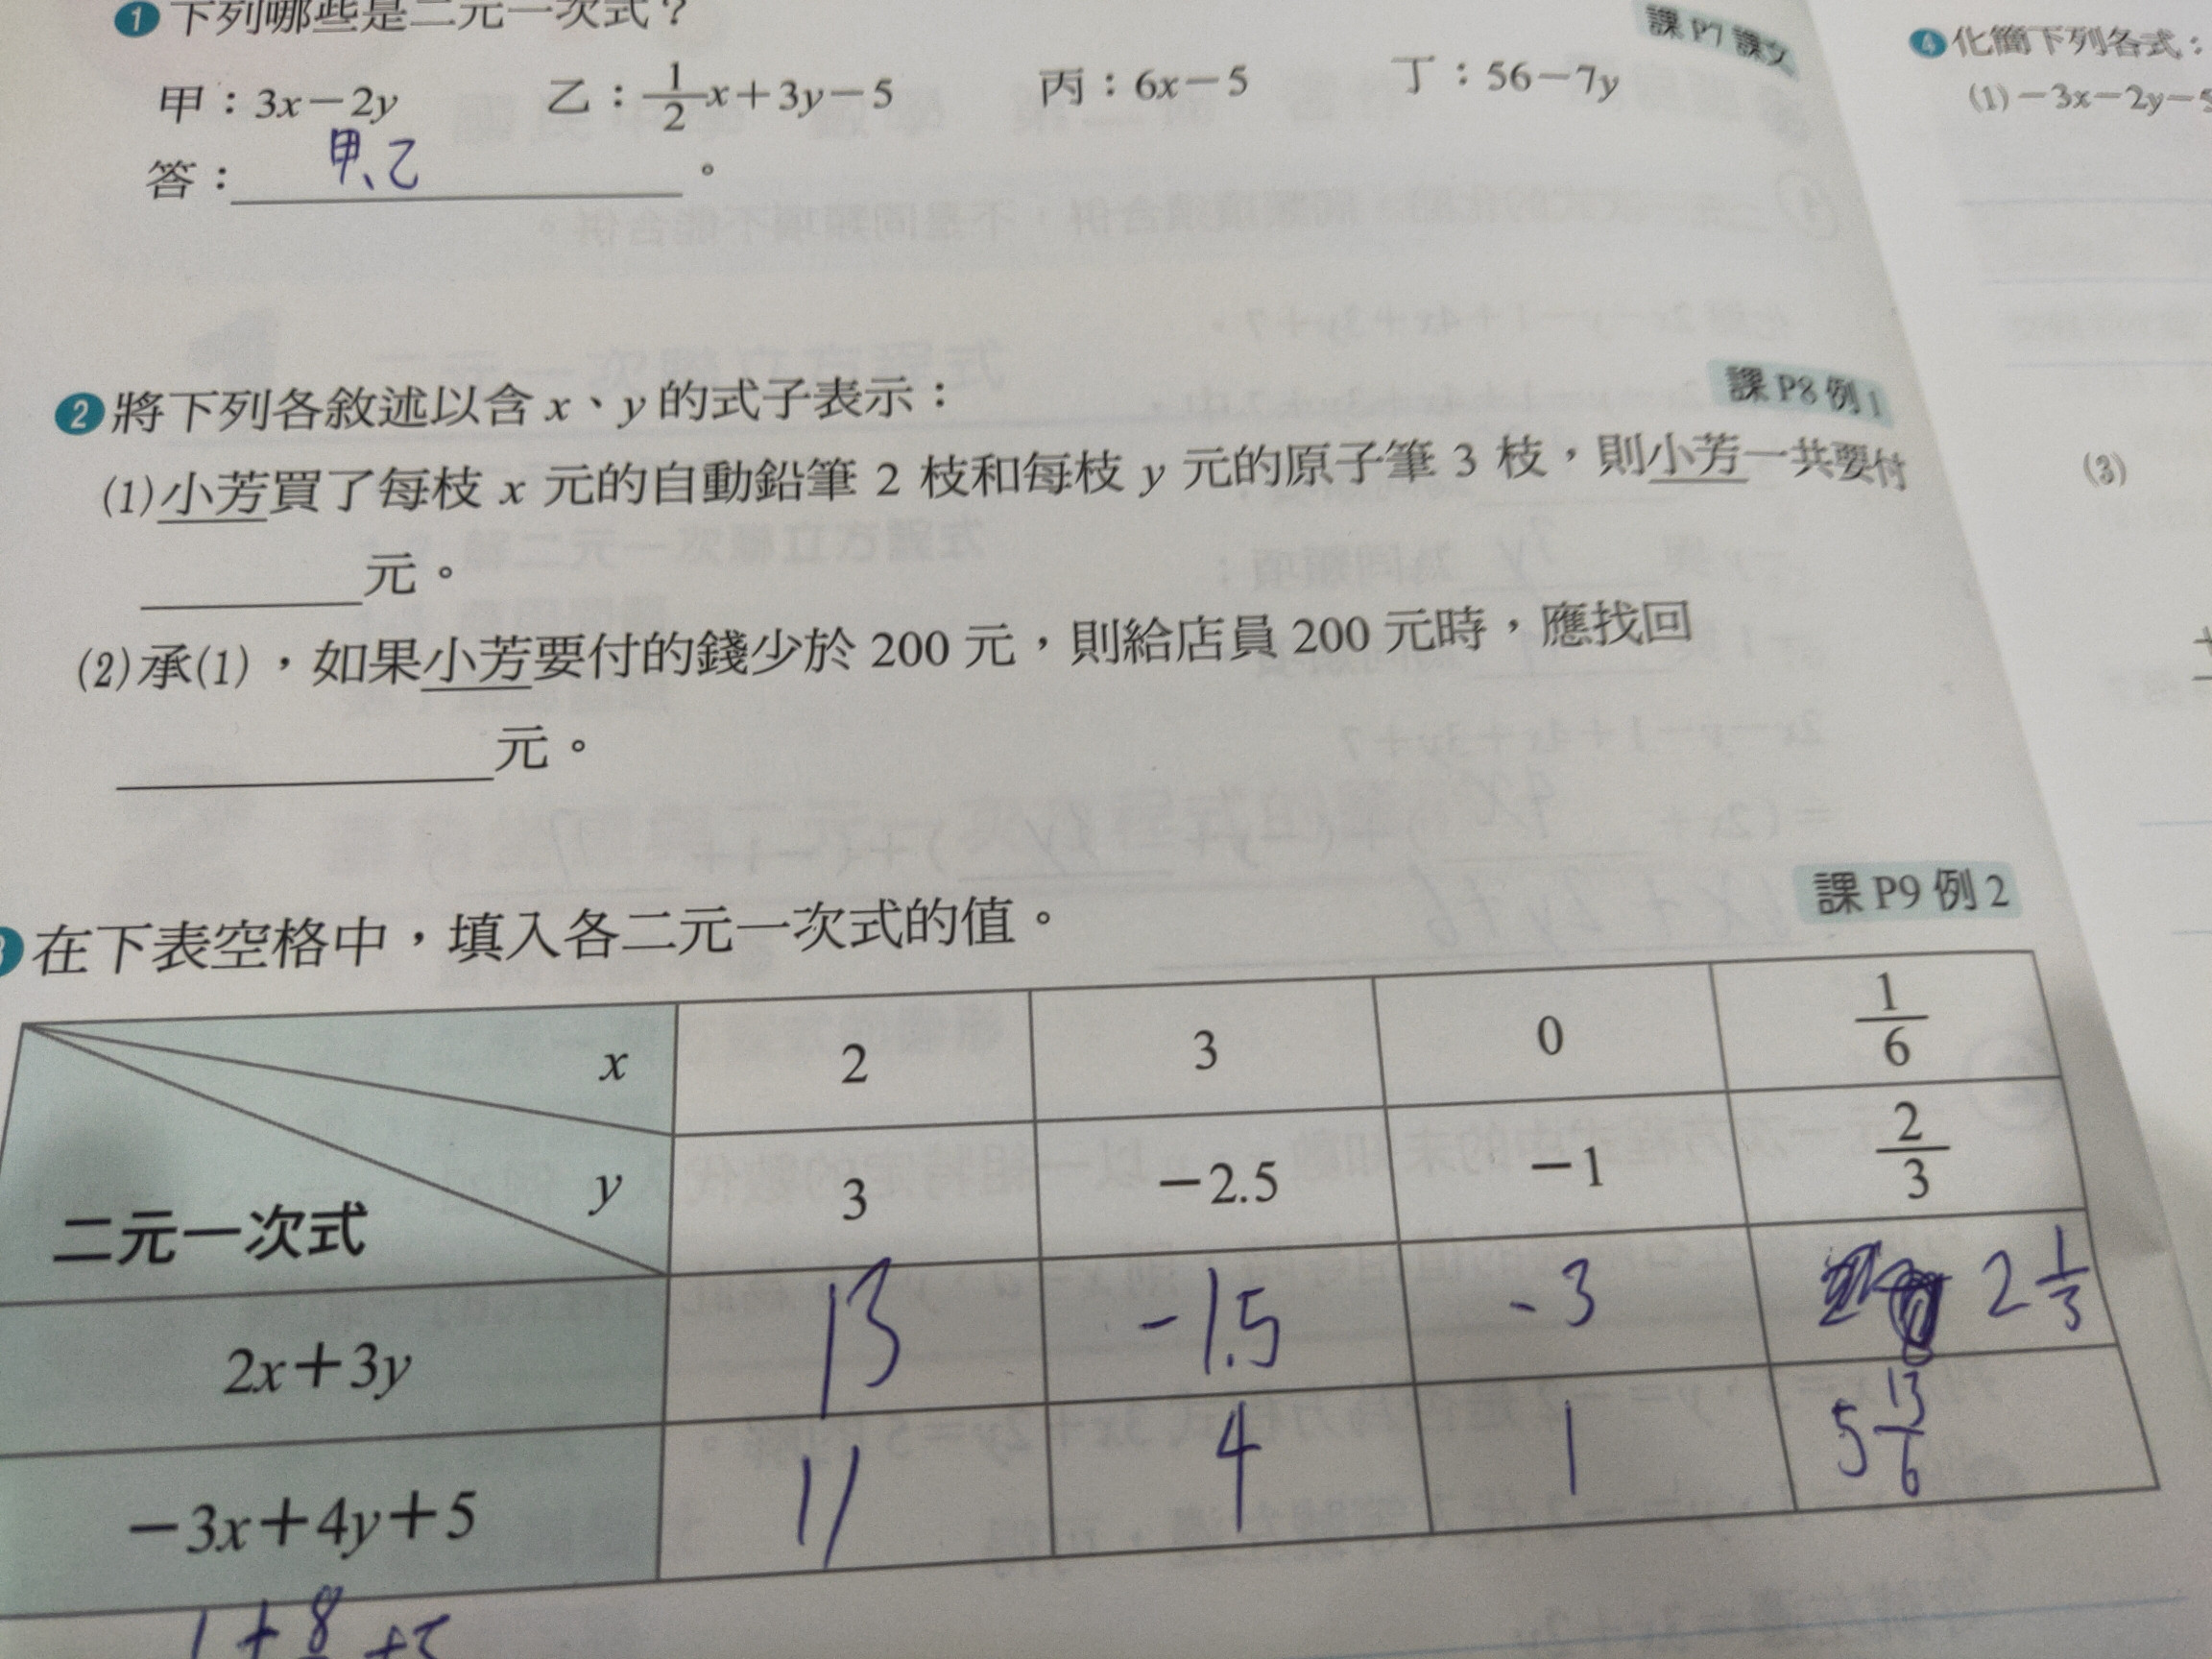 1 下列哪些是二元一次式？
課 P7 課文
甲：3x－2y 乙：1/2x＋3y－5 丙：6x－5 丁：56－7y
答：甲、乙。
2 將下列各敘述以含 x、y 的式子表示：
課 P8 例 1
(1)小芳買了每枝 x 元的自動鉛筆 2 枝和每枝 y 元的原子筆 3 枝，則小芳一共要付
元。
(2)承(1)，如果小芳要付的錢少於 200 元，則給店員 200 元時，應找回
元。
課 P9 例 2
3 在下表空格中，填入各二元一次式的值。
x 2 3 0 1/6
y 3 －2.5 －1 2/3
二元一次式
2x＋3y 13 -1.5 -3 2 1/3
－3x＋4y＋5 11 4 1 5 13/6
4 化簡下列各式：
(1)－3x－2y－5
(3)